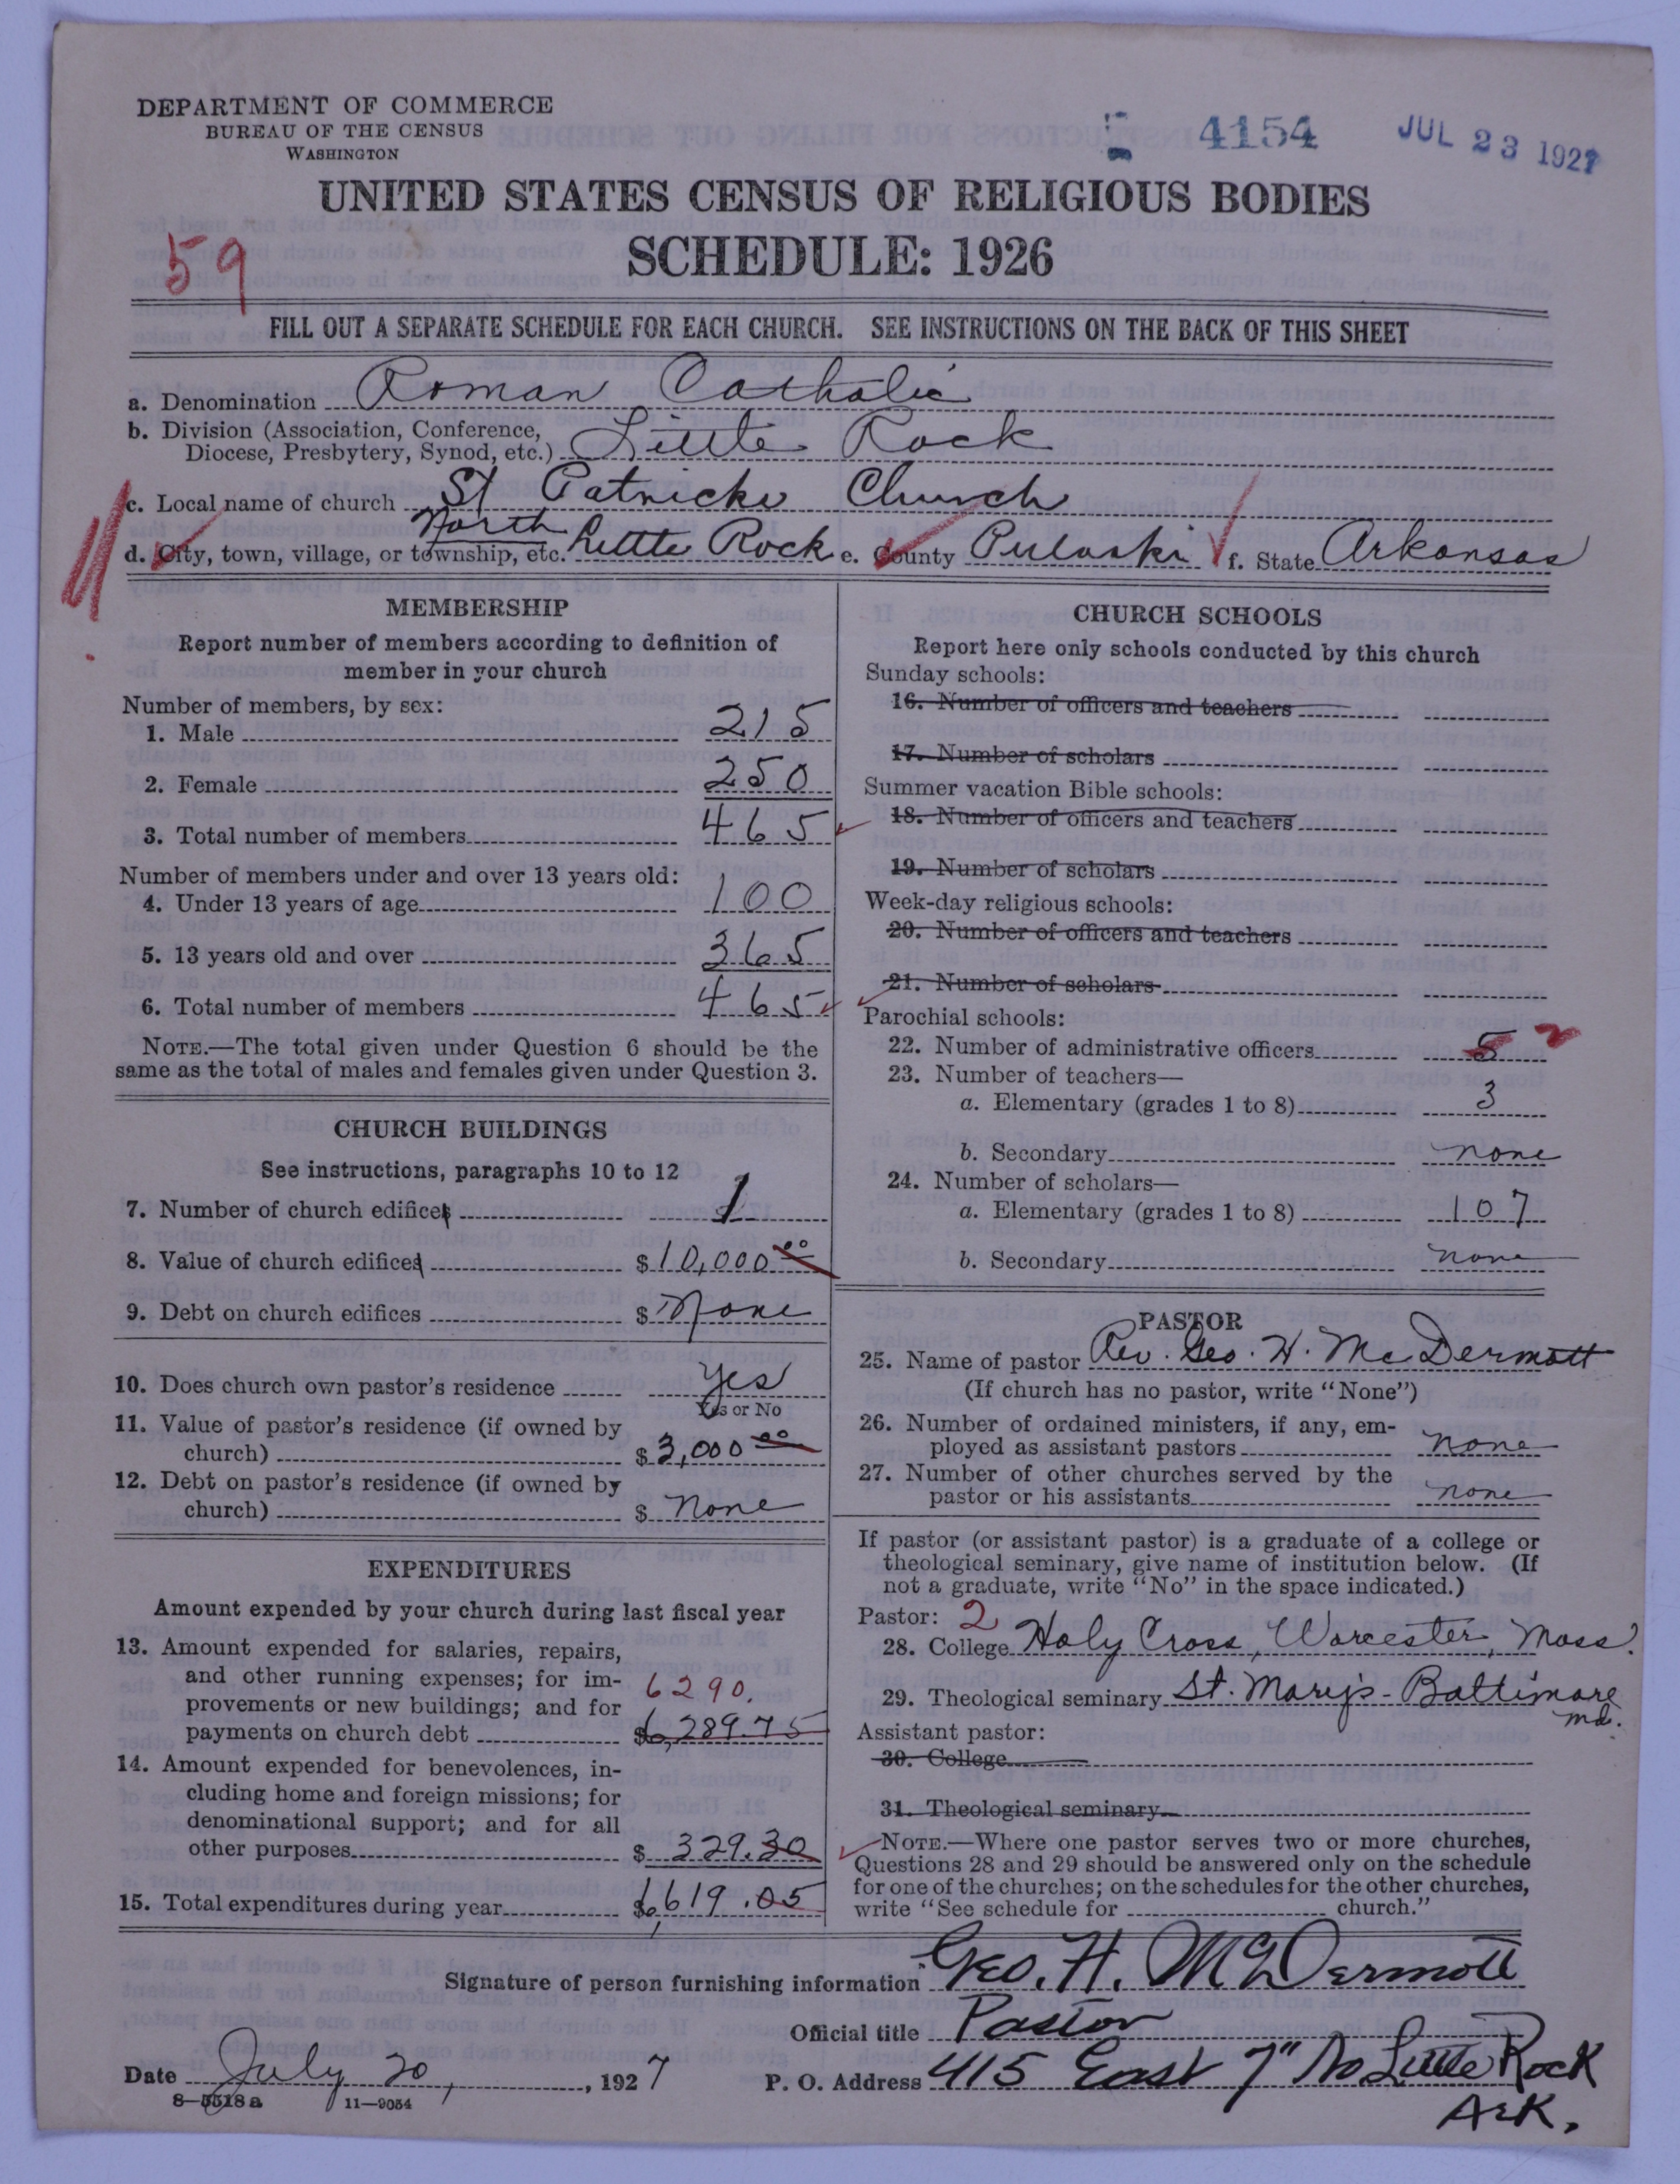 DEPARTMENT OF COMMERCE
BUREAU OF THE CENSUS
WASHINGTON
4154
JUL 23 1927
UNITED STATES CENSUS OF RELIGIOUS BODIES
SCHEDULE: 1926
59
FILL OUT A SEPARATE SCHEDULE FOR EACH CHURCH. SEE INSTRUCTIONS ON THE BACK OF THIS SHEET
a. Denomination Roman Catholic
b. Division (Association, Conference,
Diocese, Presbytery, Synod, etc.) Little Rock
c. Local name of church St Patricks Church
d. City, town, village, or township, etc. North Little Rock e. County Pulaski f. State Arkansas
MEMBERSHIP
Report number of members according to definition of
member in your church
Number of members, by sex:
1. Male 215
2. Female 250
3. Total number of members 465
Number of members under and over 13 years old:
4. Under 13 years of age 100
5. 13 years old and over 365
6. Total number of members 465
NOTE.—The total given under Question 6 should be the
same as the total of males and females given under Question 3.
CHURCH BUILDINGS
See instructions, paragraphs 10 to 12
7. Number of church edifices 1
8. Value of church edifices $10,000.00
9. Debt on church edifices $ None
10. Does church own pastor's residence Yes
Yes or No
11. Value of pastor's residence (if owned by
church) $3,000.00
12. Debt on pastor's residence (if owned by
church) $ None
EXPENDITURES
Amount expended by your church during last fiscal year
13. Amount expended for salaries, repairs,
and other running expenses; for im-
provements or new buildings; and for
6290.
payments on church debt $6,289.75
14. Amount expended for benevolences, in-
cluding home and foreign missions; for
denominational support; and for all
other purposes $ 329.30
15. Total expenditures during year $6,619.05
CHURCH SCHOOLS
Report here only schools conducted by this church
Sunday schools:
16. Number of officers and teachers
17. Number of scholars
Summer vacation Bible schools:
18. Number of officers and teachers
19. Number of scholars
Week-day religious schools:
20. Number of officers and teachers
21. Number of scholars
Parochial schools:
22. Number of administrative officers 5 2
23. Number of teachers—
a. Elementary (grades 1 to 8) 3
b. Secondary none
24. Number of scholars—
a. Elementary (grades 1 to 8) 107
b. Secondary none
PASTOR
25. Name of pastor Rev. Geo. H. McDermott
(If church has no pastor, write "None")
26. Number of ordained ministers, if any, em-
ployed as assistant pastors none
27. Number of other churches served by the
pastor or his assistants none
If pastor (or assistant pastor) is a graduate of a college or
theological seminary, give name of institution below. (If
not a graduate, write "No" in the space indicated.)
Pastor: 2
28. College Holy Cross, Worcester, Mass.
29. Theological seminary St. Mary's - Baltimore
Md.
Assistant pastor:
30. College
31. Theological seminary
NOTE.—Where one pastor serves two or more churches,
Questions 28 and 29 should be answered only on the schedule
for one of the churches; on the schedules for the other churches,
write "See schedule for church."
Signature of person furnishing information Geo. H. McDermott
Official title Pastor
Date July 20, 1927
P. O. Address 415 East 7" No Little Rock
Ark.
8—5518a 11—9054